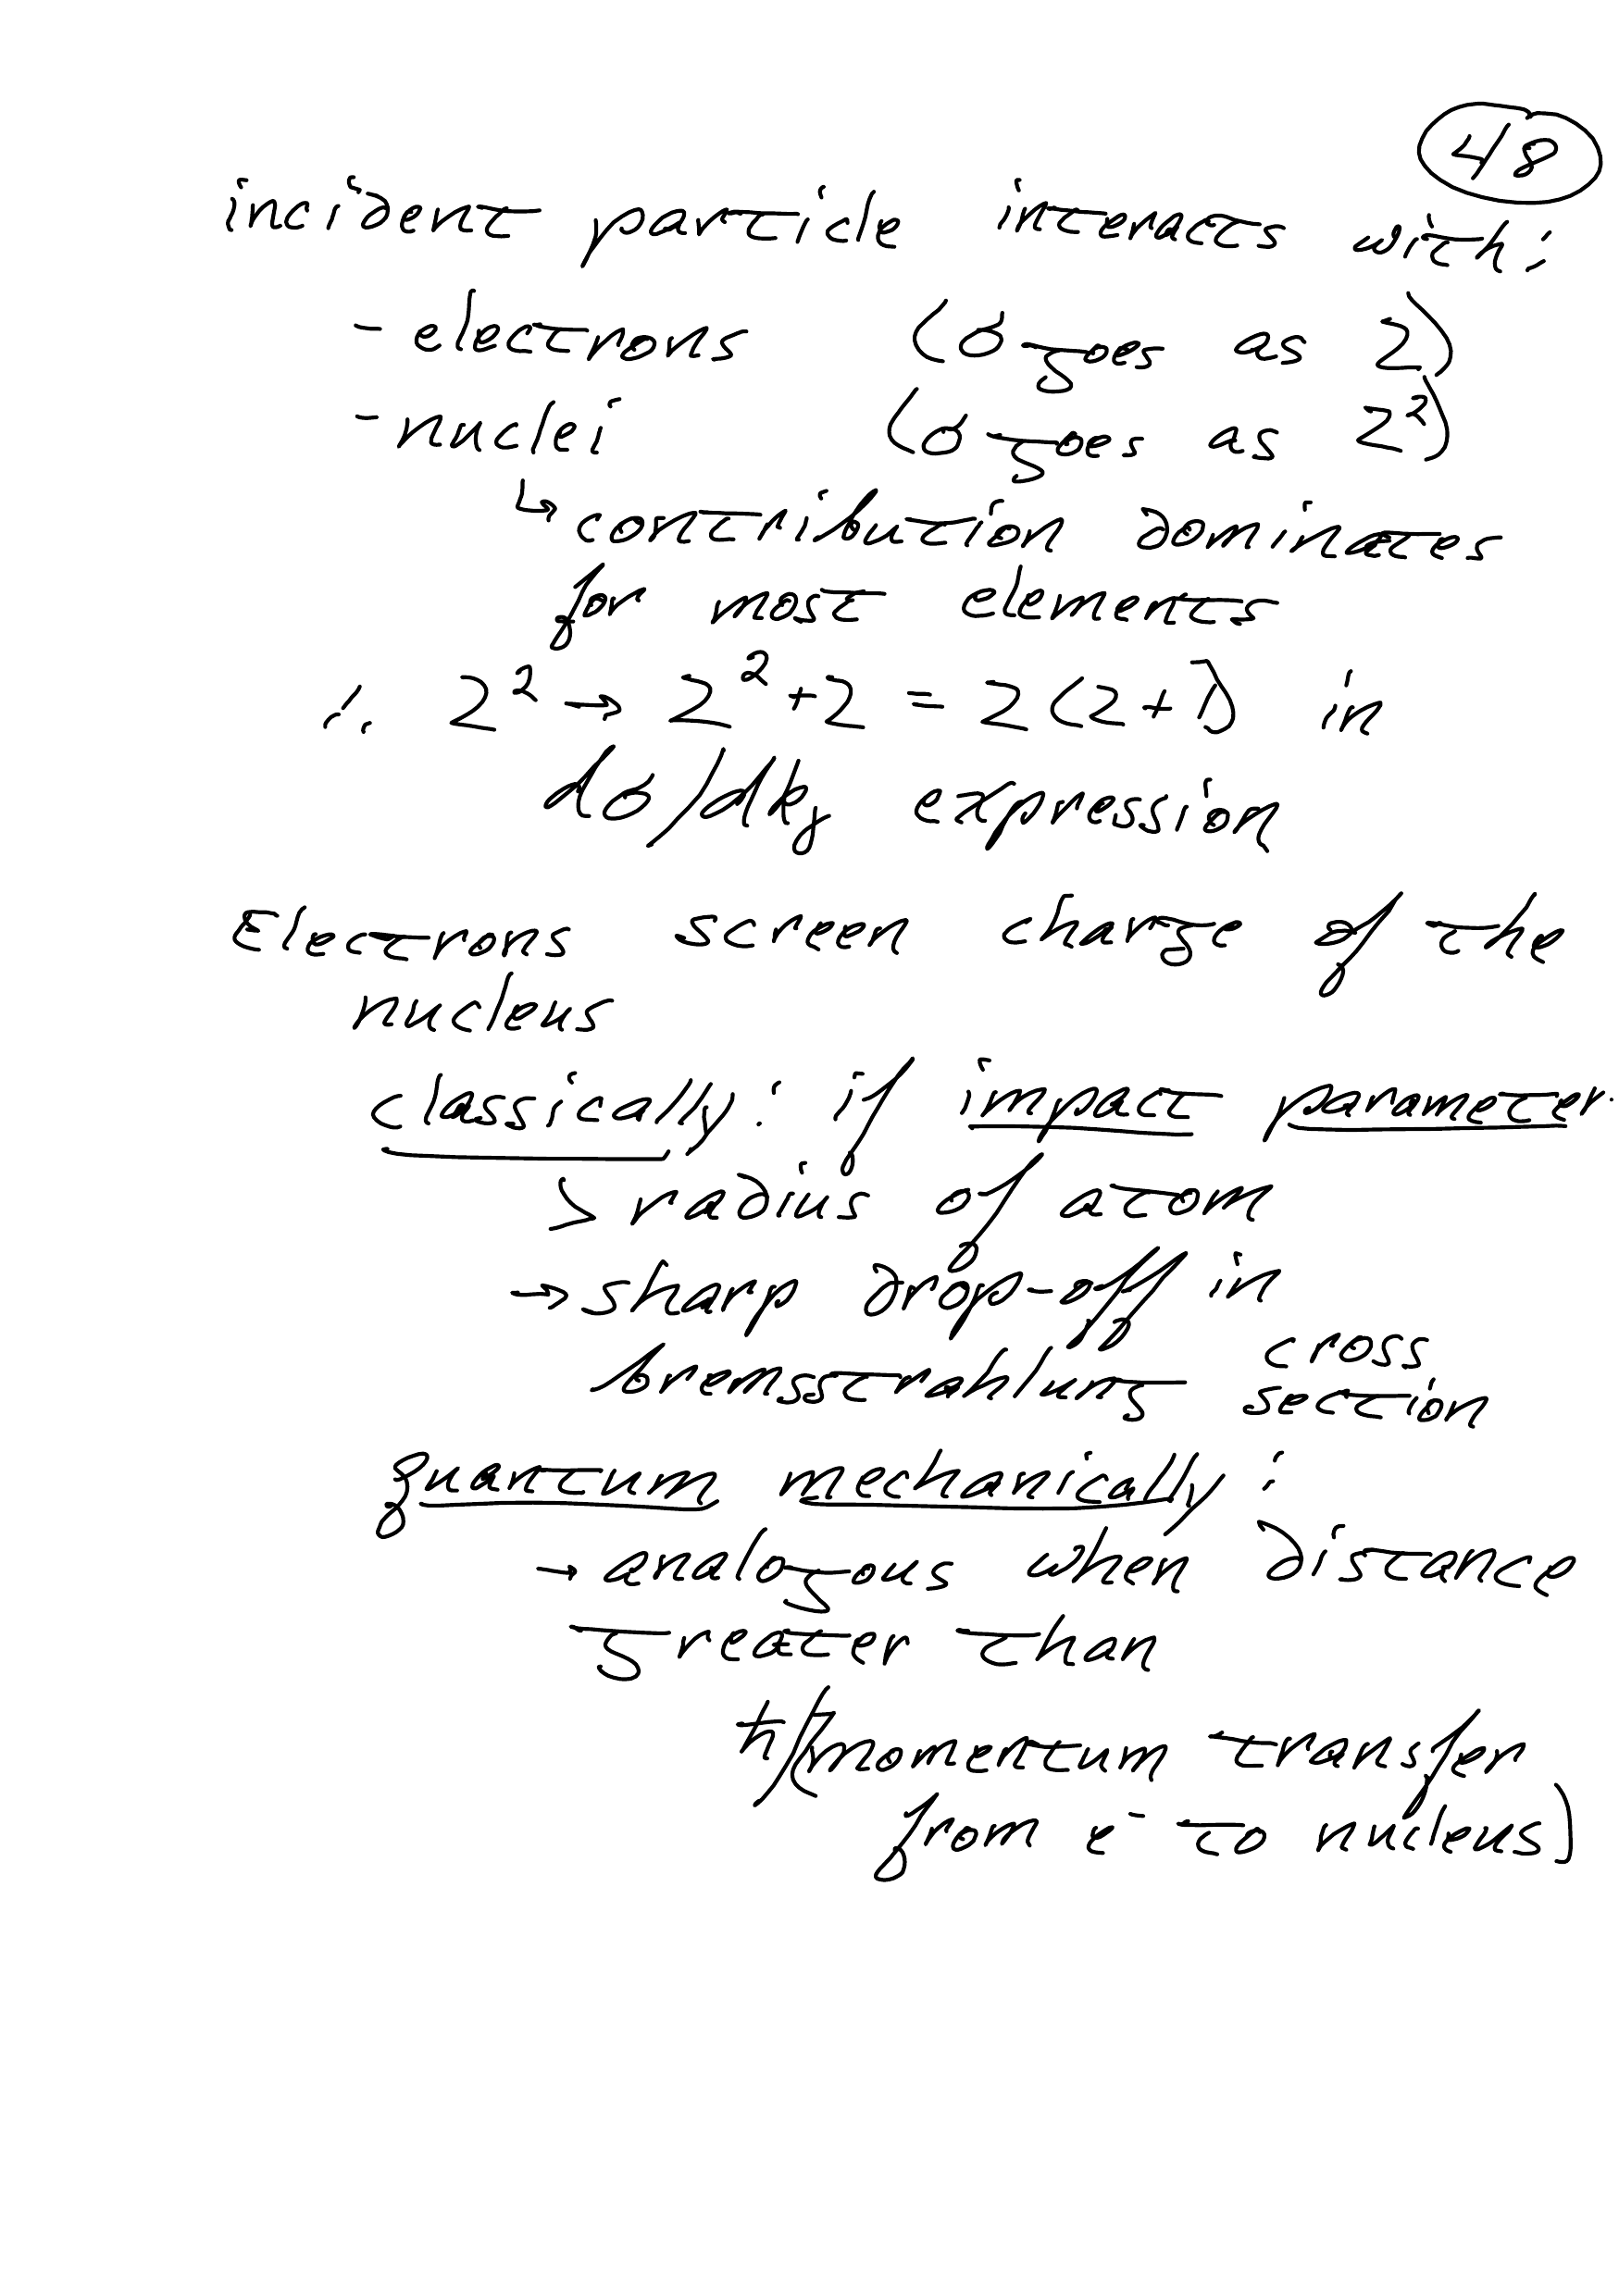 48
incident particle interacts with:
- electrons (σ goes as Z)
- nuclei (σ goes as Z²)
↳ contribution dominates
for most elements
∴ Z² → Z² + Z = Z(Z+1) in
dσ/dkγ expression
Electrons screen charge of the
nucleus
classically: if impact parameter
> radius of atom
→ sharp drop-off in
bremsstrahlung cross section
quantum mechanically:
→ analogous when distance
greater than
ħ/(momentum transfer
from e⁻ to nucleus)